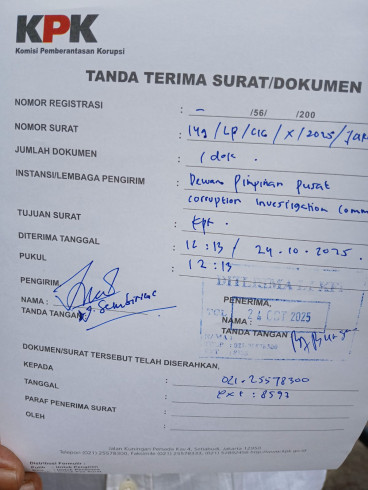 KPK
Komisi Pemberantasan Korupsi
TANDA TERIMA SURAT/DOKUMEN
NOMOR REGISTRASI : - /56/ /200
NOMOR SURAT : 149/LP/CIC/X/2025/Jak
JUMLAH DOKUMEN : 1 dok.
INSTANSI/LEMBAGA PENGIRIM : Dewan Pimpinan pusat
corruption investigation comm
TUJUAN SURAT : KPK.
DITERIMA TANGGAL : 12:13 / 24.10.2025.
PUKUL : 12:13
PENGIRIM
PENERIMA,
24 OCT 2025
NAMA :
NAMA :
TANDA TANGAN
TANDA TANGAN
DOKUMEN/SURAT TERSEBUT TELAH DISERAHKAN,
KEPADA : 021.25578300
TANGGAL : ext : 8592
PARAF PENERIMA SURAT :
OLEH :
Distribusi Formulir :